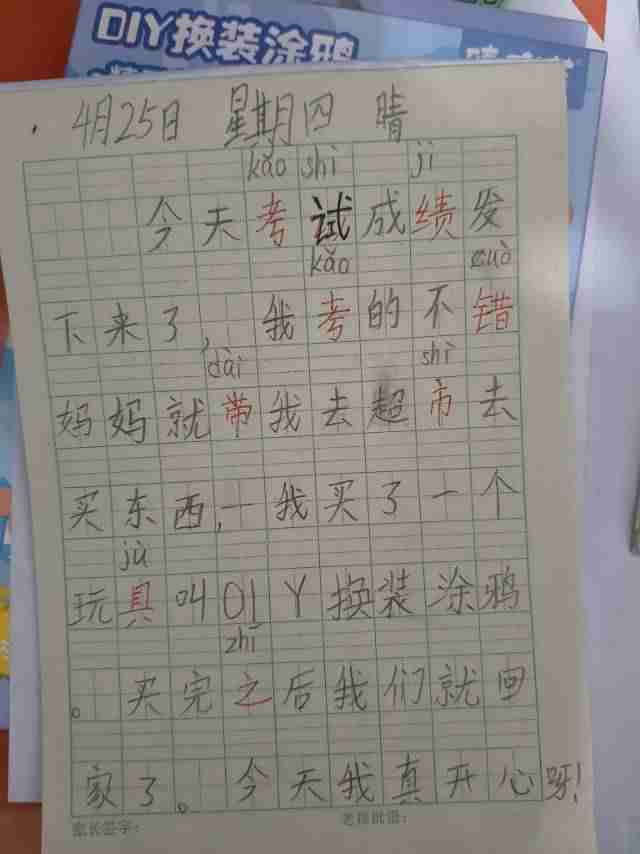 DIY换装涂鸦
4月25日 星期四 晴
kǎo shì jì
今天考试成绩发
kǎo cuò
下来了,我考的不错
dài shì
妈妈就带我去超市去
买东西,我买了一个
jù
玩具叫DIY换装涂鸦
zhī
。买完之后我们就回
家了。今天我真开心呀!
家长签字: 老师批语: